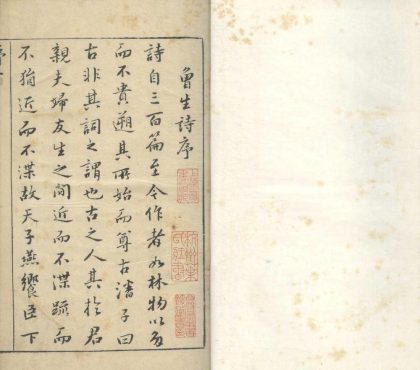 魯生詩序
詩自三百篇至今作者如林物以多
而不貴遡其所始而尊古潘子曰
古非其詞之謂也古之人其於君
親夫婦友生之間近而不渫疏而
不猜近而不渫故天子燕饗臣下